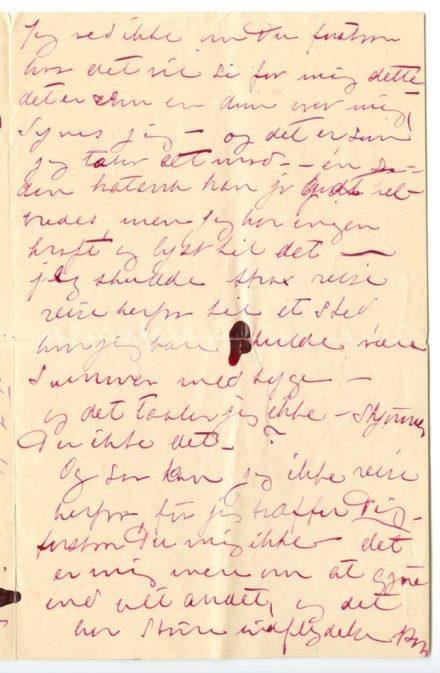 Jeg ved ikke om Du forstaar
hva det vil si for mig dette
det er som en dom over mig,
synes jeg – og det er som
jeg taber alt mod – én
kan jo godt hel-
bredes men jeg har ingen
kraft og lyst til det —
jeg skulde strax reise
reise herfra til et Sted
hvor jeg bare skulde være
Sammen med syge –
og det taaler jeg ikke – Skjønner
Du ikke det – ?
Og saa kan jeg ikke reise
herfra før jeg træffer Dig –
forstaar Du mig ikke – det
er mig mere om at gjøre
end alt andet, og det
har Større indflydelse